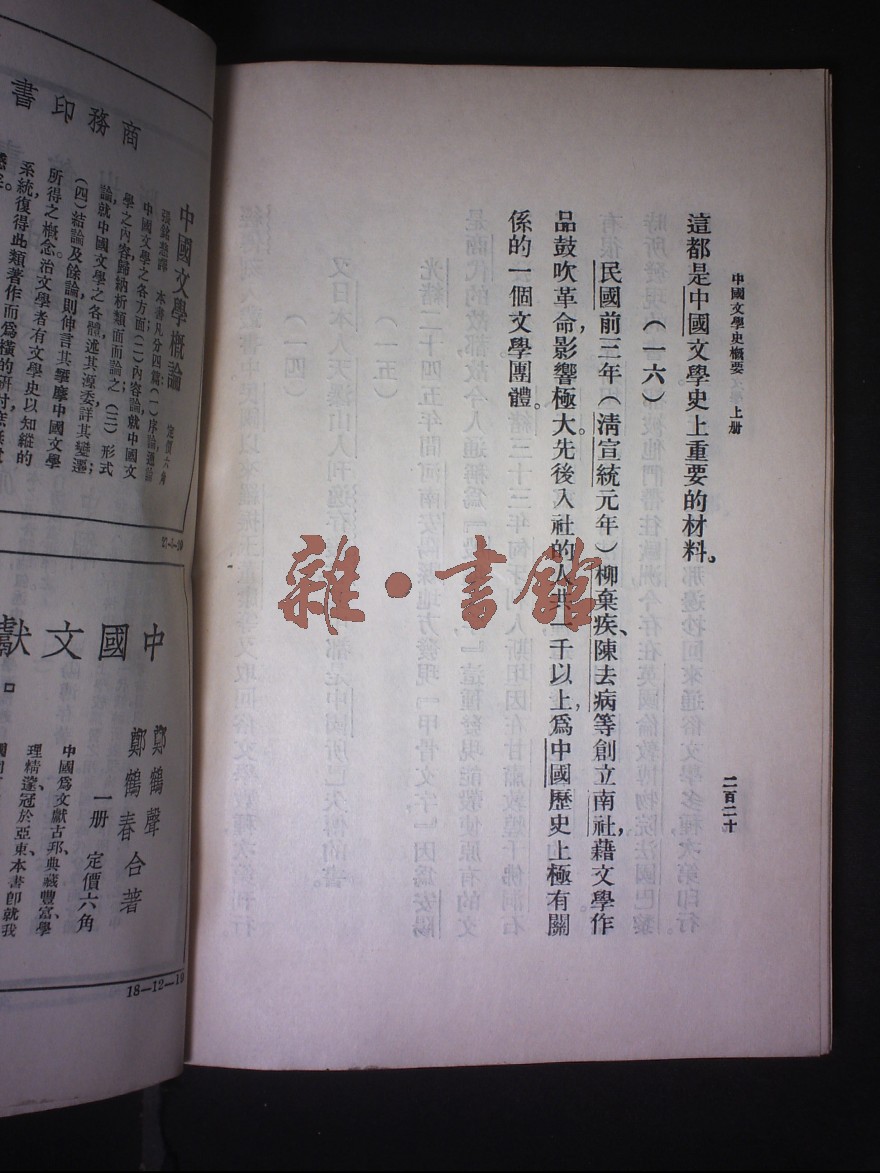 中國文學史概要 上册
二百二十
這都是中國文學史上重要的材料。
(一六)
民國前三年(清宣統元年)柳棄疾、陳去病等創立南社,藉文學作
品鼓吹革命,影響極大。先後入社的人共一千以上,爲中國歷史上極有關
係的一個文學團體。
雜·書館
商務印書
中國文學概論
張銘慈譯 定價六角
本書凡分四篇:(一)序論通論
中國文學之各方面;(二)內容論就中國文
學之內容歸納析類而論之;(三)形式
論就中國文學之各體述其源委詳其變遷;
(四)結論及餘論則伸言其 摩中國文學
所得之概念治文學者有文學史以知縱的
系統復得此類著作而爲橫的研討
中國文獻
鄭鶴聲
鄭鶴春合著
一册 定價六角
中國爲文獻古邦典藏豐富學
理精邃冠於亞東本書卽就我
18—12—19